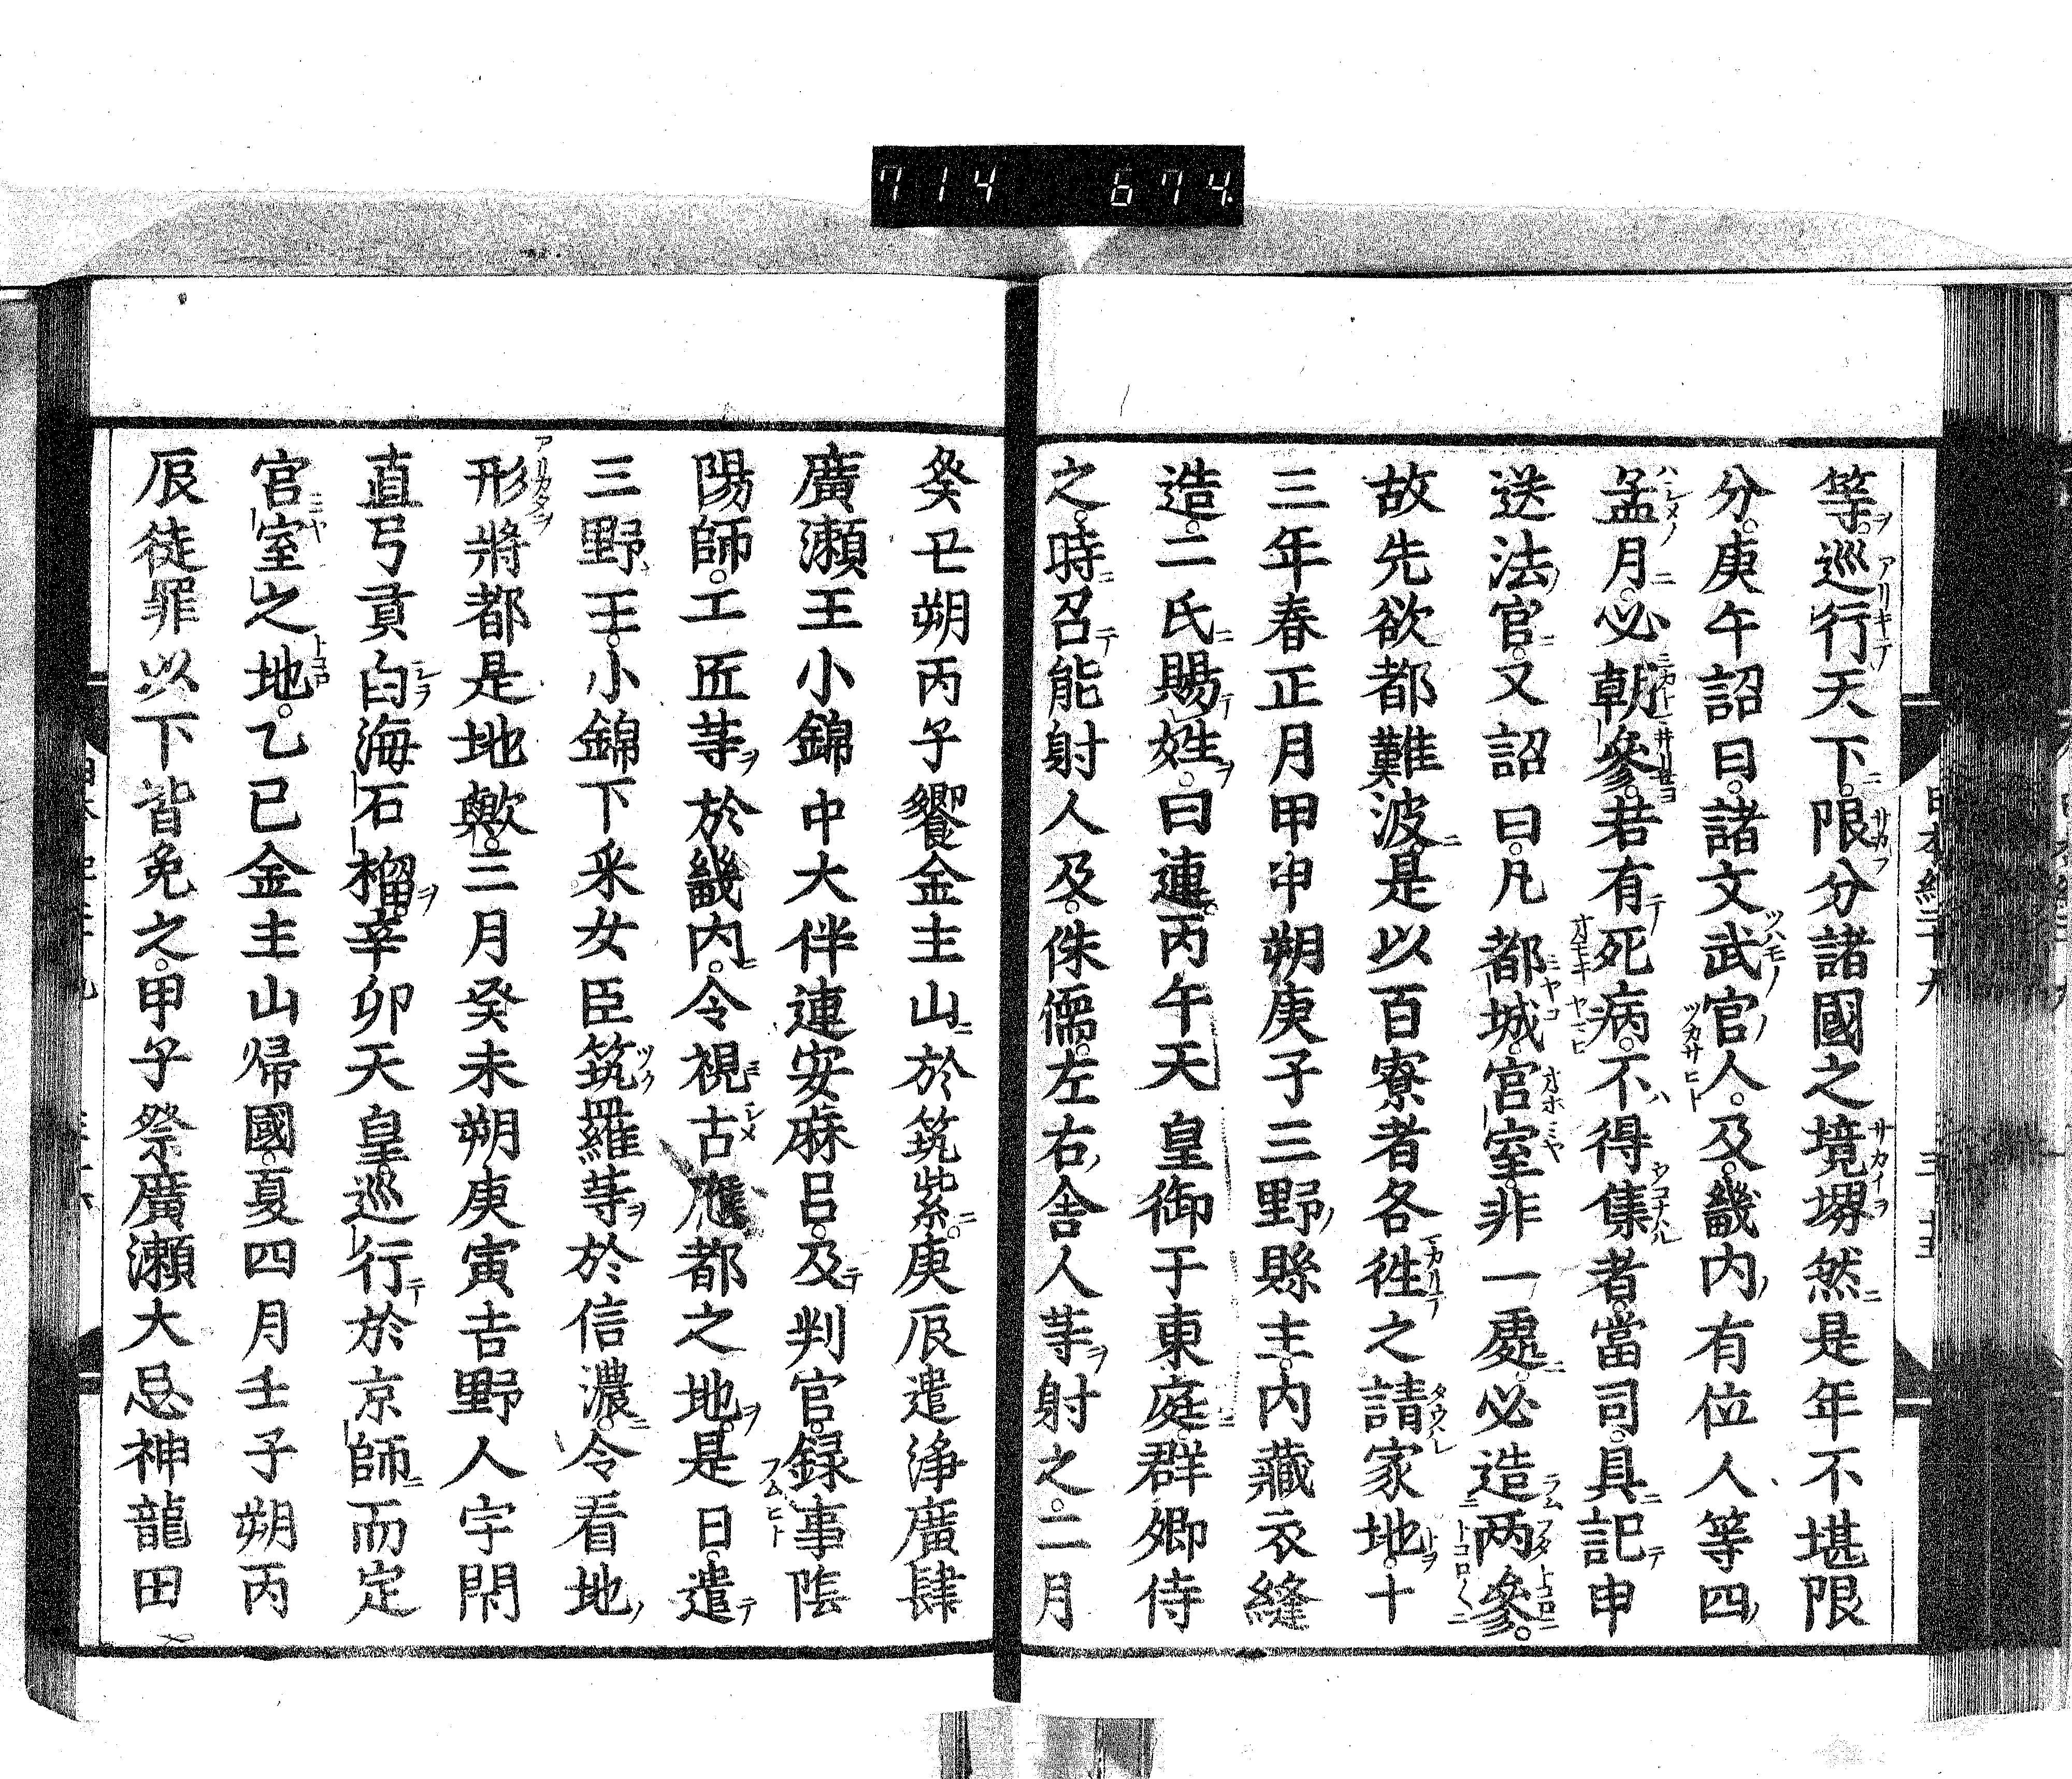 714 674
等巡行天下限分諸國之境堺然是年不堪限
分庚午詔曰諸文武官人及畿内有位人等四
孟月必朝參若有死病不得集者當司具記申
送法官又詔曰凡都城宮室非一處必造两參
故先欲都難波是以百寮者各徃之請家地十
三年春正月甲申朔庚子三野縣主内藏衣縫
造二氏賜姓曰連丙午天皇御于東庭群卿侍
之時召能射人及侏儒左右舍人等射之二月
癸丑朔丙子饗金主山於筑紫庚辰遣淨廣肆
廣瀬王小錦中大伴連安麻呂及判官録事陰
陽師工匠等於畿内令視古應都之地是日遣
三野王小錦下釆女臣筑羅等於信濃令看地
形將都是地歟三月癸未朔庚寅吉野人宇閇
直弓貢白海石榴辛卯天皇巡行於京師而定
宮室之地乙巳金主山帰國夏四月壬子朔丙
辰徒罪以下皆免之甲子祭廣瀬大忌神龍田